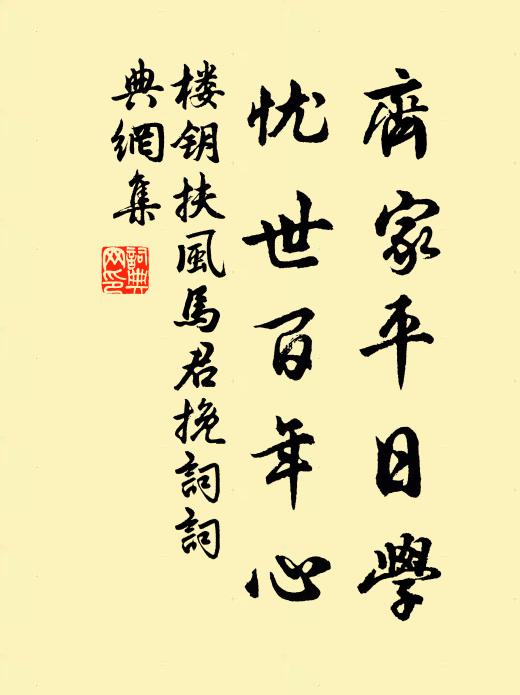 齊家平日學
忧世百年心
楼钥扶風馬君挽詞詞
典網集
詞典
网印